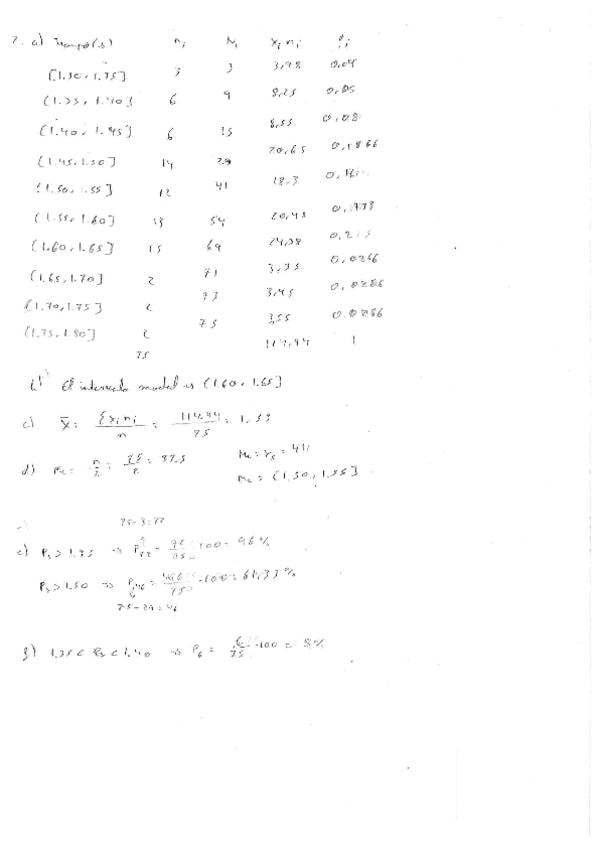 2. a) Tiempo(s) ni Ni xi ni fi
[1.30, 1.35] 3 3 3,98 0,04
(1.35, 1.40] 6 9 8,25 0,08
(1.40, 1.45] 6 15 8,55 0,08
(1.45, 1.50] 14 29 20,65 0,1866
(1.50, 1.55] 12 41 18,3
(1.55, 1.60] 13 54 20,48 0,1733
(1.60, 1.65] 15 69 24,38
(1.65, 1.70] 2 71 3,35 0,0266
(1.70, 1.75] 2 73 3,45 0,0266
(1.75, 1.80] 2 75 3,55 0.0266
75 114,94 1
El intervalo modal es (1.60, 1.65]
c) x̄ = Σxi ni / n = 114,94 / 75 = 1,53
d) n/2 = 75/2 = 37,5
Me = (1.50, 1.55]
75-3=72
e) P > 1.35 ⇒ P72 = 72/75 · 100 = 96%
P > 1.50 ⇒ P46 = 46/75 · 100 = 61,33%
75-29=46
f) 1.35 < P < 1.40 ⇒ P6 = 6/75 · 100 = 8%